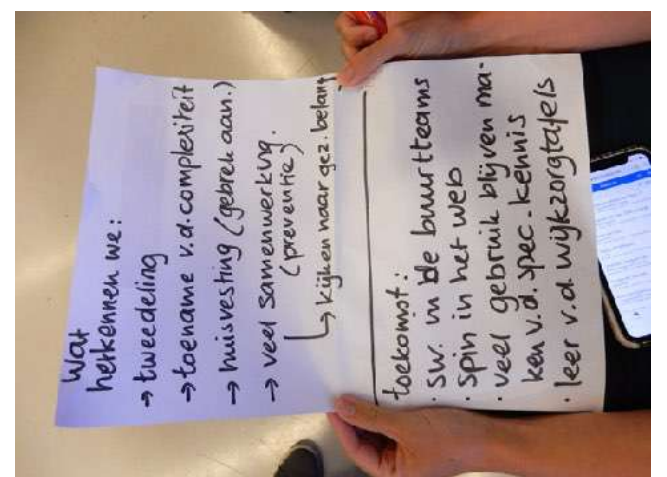 Wat
herkennen we:
→ tweedeling
→ toename v.d. complexiteit
→ huisvesting (gebrek aan.)
→ veel samenwerkng.
(preventie)
↳ kijken naar gez. belang
toekomst:
· sw. in de buurtteams
· spin in het web
· veel gebruik blijven ma-
ken v.d. spec. kennis
· leer v.d. wijkzorgtafels